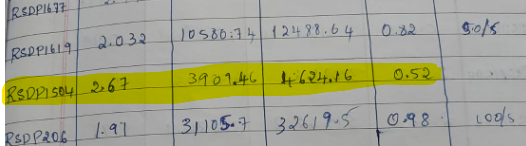 RSDP1677
RSDP1619 2.032 10580.74 12488.64 0.82 50/5
RSDP1504 2.67 3909.46 4624.16 0.52
RSDP206 1.97 31105.7 32619.5 0.98 100/5